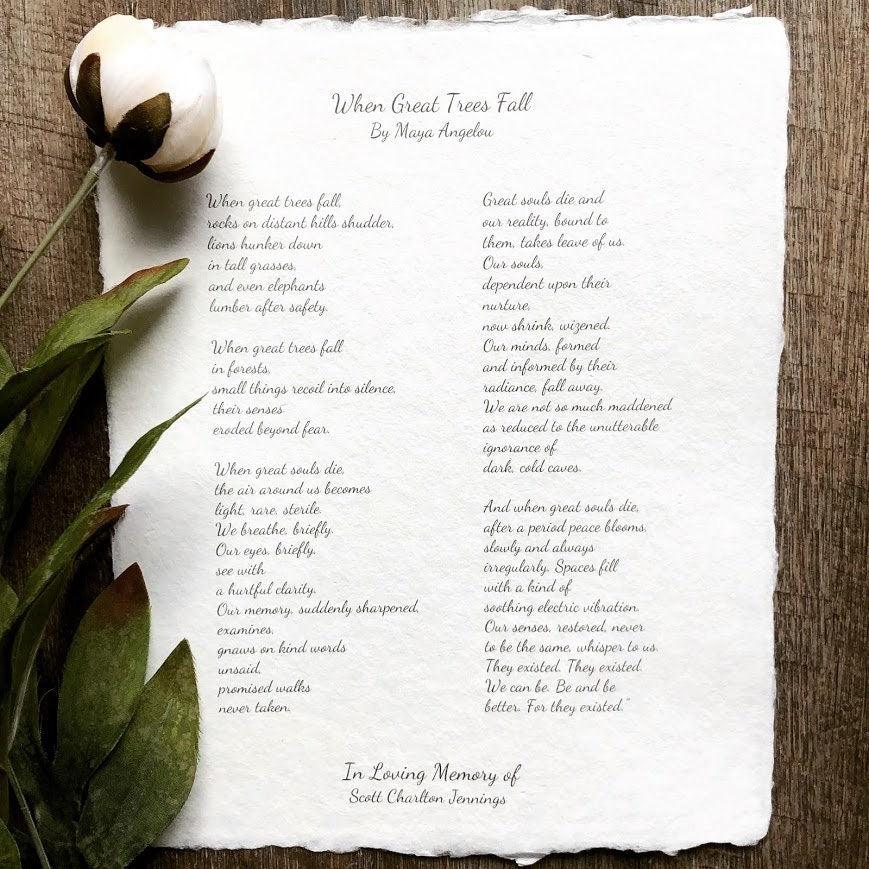 When Great Trees Fall
By Maya Angelou
When great trees fall,
rocks on distant hills shudder,
lions hunker down
in tall grasses,
and even elephants
lumber after safety.
When great trees fall
in forests,
small things recoil into silence,
their senses
eroded beyond fear.
When great souls die,
the air around us becomes
light, rare, sterile.
We breathe, briefly.
Our eyes, briefly,
see with
a hurtful clarity.
Our memory, suddenly sharpened,
examines,
gnaws on kind words
unsaid,
promised walks
never taken.
Great souls die and
our reality, bound to
them, takes leave of us.
Our souls,
dependent upon their
nurture,
now shrink, wizened.
Our minds, formed
and informed by their
radiance, fall away.
We are not so much maddened
as reduced to the unutterable
ignorance of
dark, cold caves.
And when great souls die,
after a period peace blooms,
slowly and always
irregularly. Spaces fill
with a kind of
soothing electric vibration.
Our senses, restored, never
to be the same, whisper to us.
They existed. They existed.
We can be. Be and be
better. For they existed."
In Loving Memory of
Scott Charlton Jennings